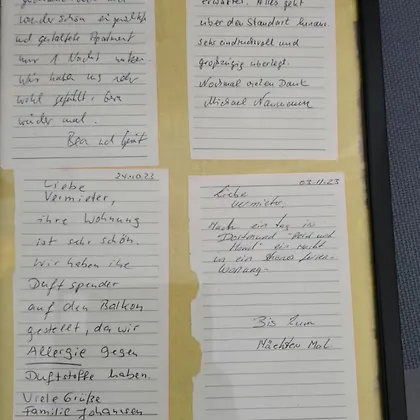 wieder schön eingerichtet
und gestaltete Apartment
nur 1 Nacht nutzen.
Wir haben uns sehr
wohl gefühlt. Gern
wieder mal.
Bea und
erwartet. Alles geht
über den Standart hinaus.
sehr eindrucksvoll und
großzügig überlegt.
Nochmal vielen Dank
Michael
24.10.23
Liebe
Vermieter,
ihre Wohnung
ist sehr schön.
Wir haben ihe
Duftspender
auf den Balkon
gestellt, da wir
Allergie gegen
Duftstoffe haben.
Viele Grüße
Familie Johannsen
03.11.23
Liebe
Vermieter,
Nach ein tag in
Dortmund
Hund" ein nacht
in ein
Wonung-
Bis zum
Nächsten Mal